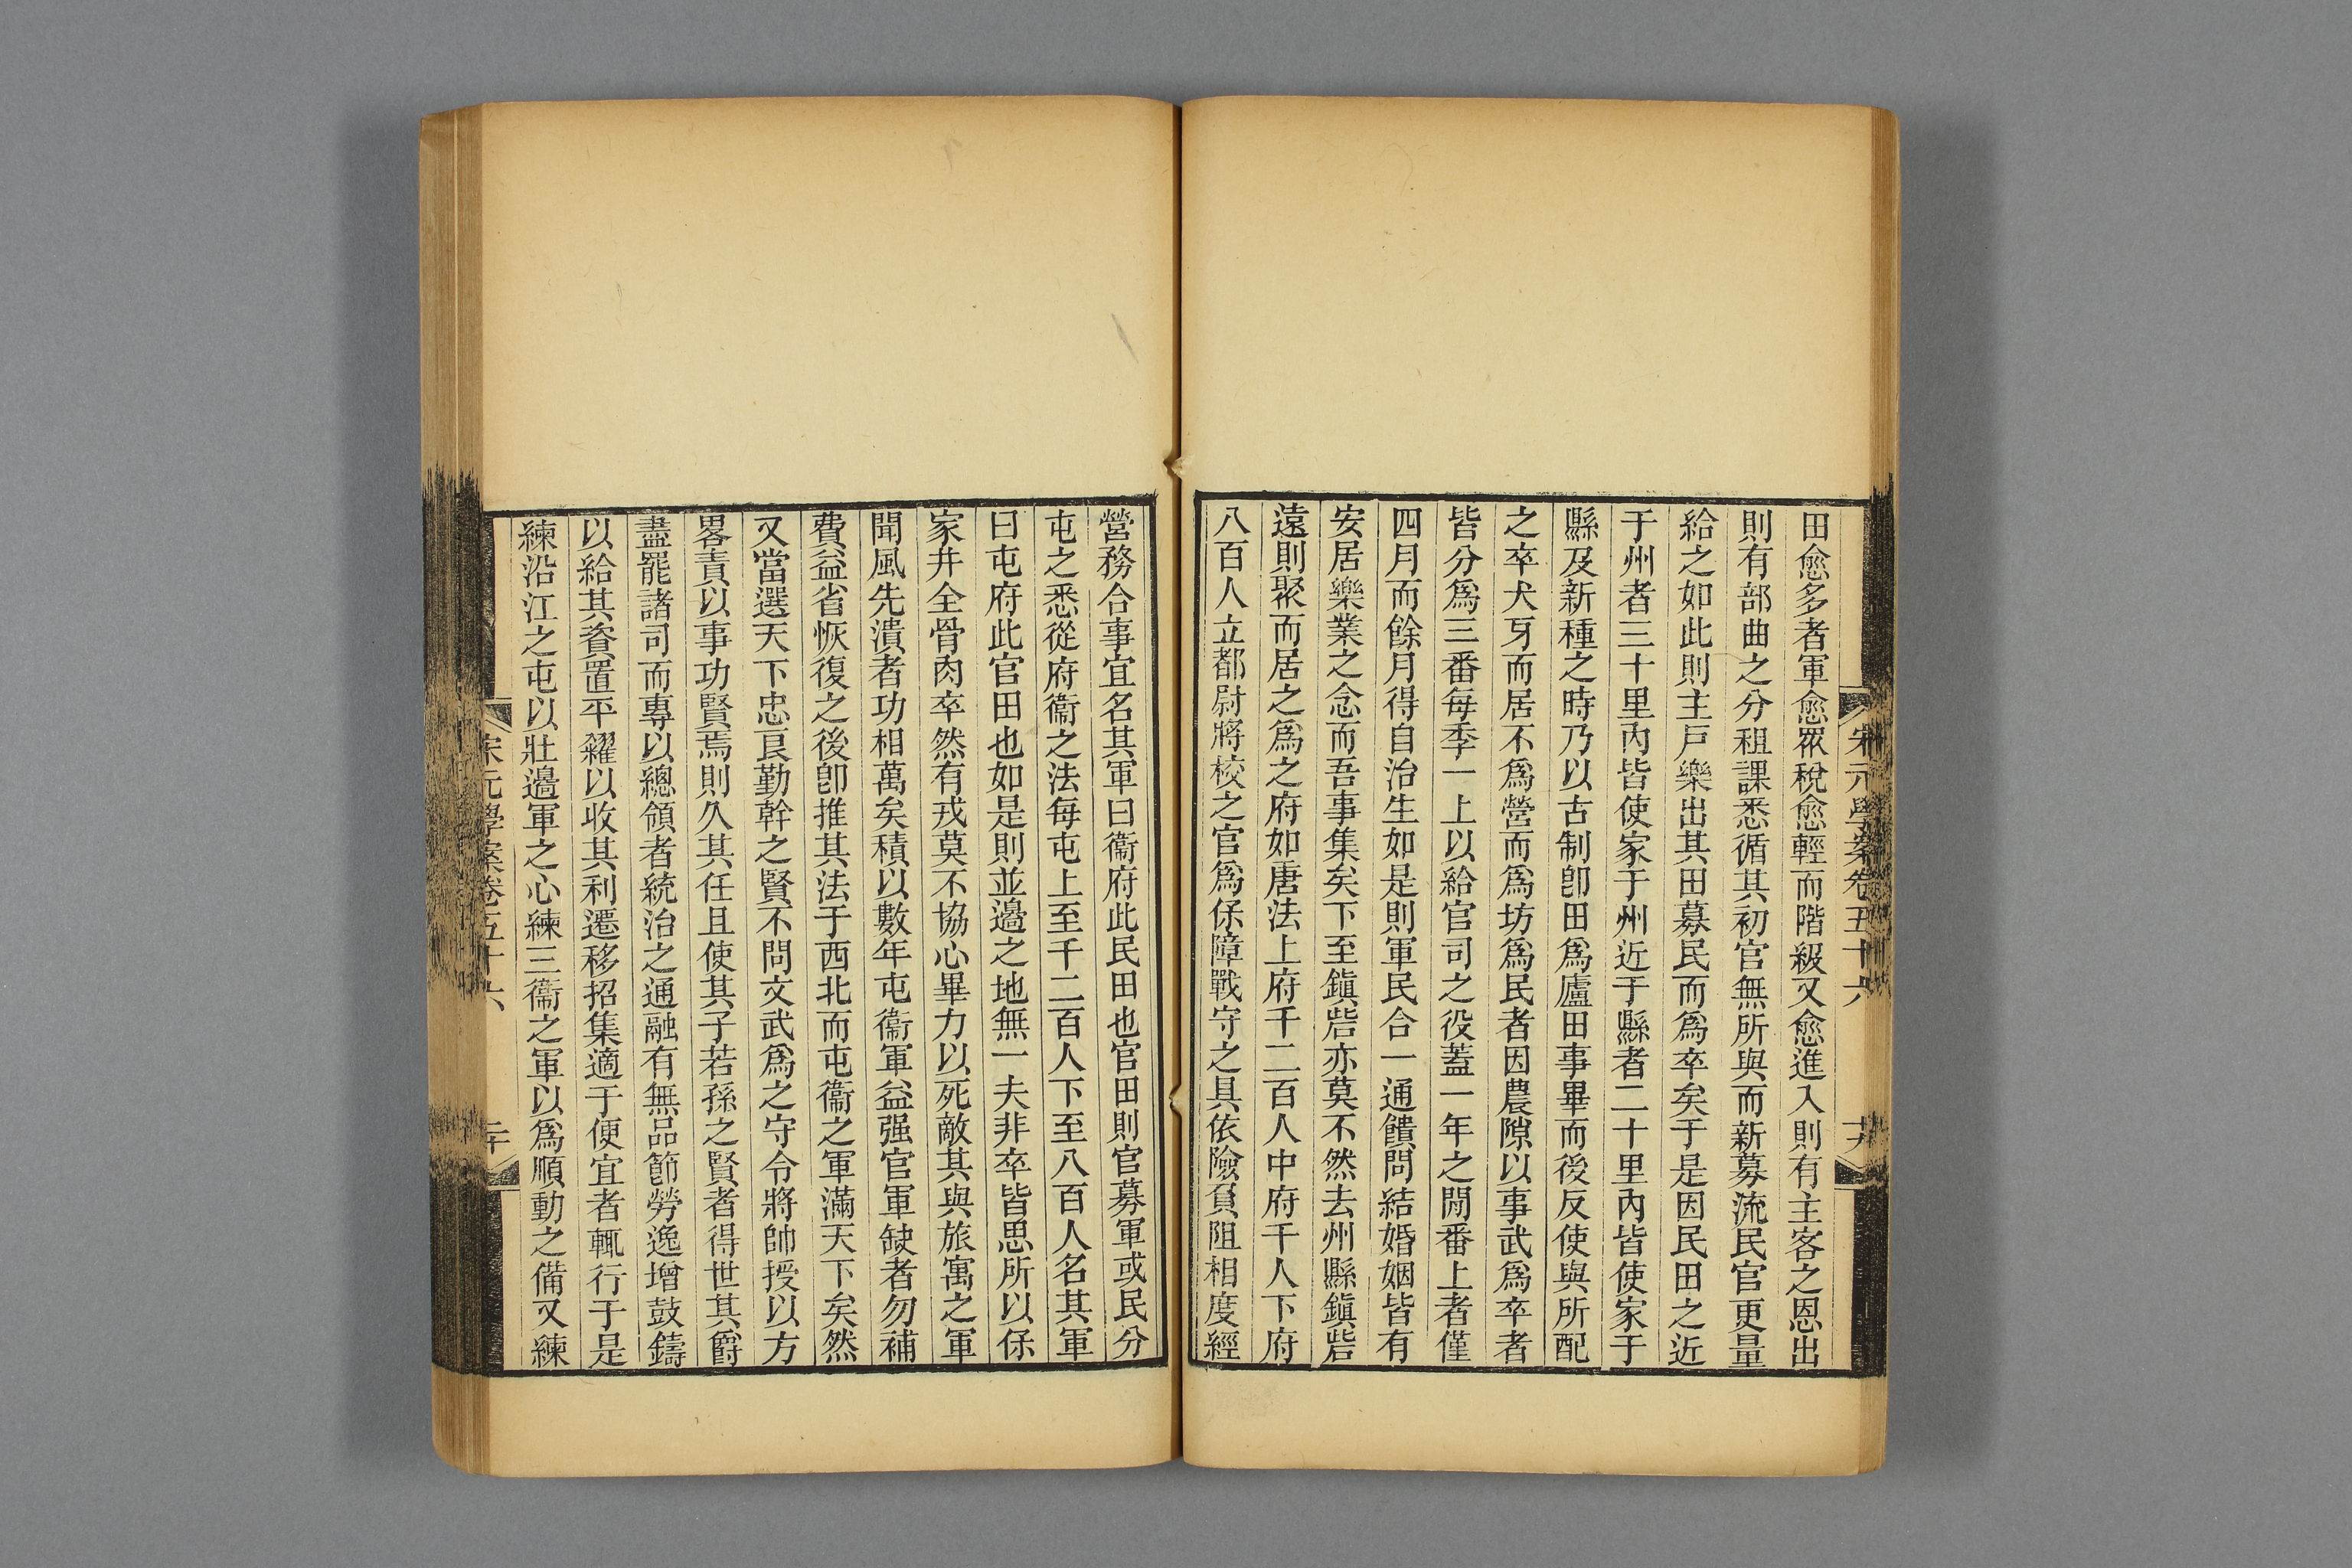 宋元學案卷五十六
十九
田愈多者軍愈眾稅愈輕而階級又愈進入則有主客之恩出
則有部曲之分租課悉循其初官無所與而新募流民官更量
給之如此則主戸樂出其田募民而爲卒矣于是因民田之近
于州者三十里內皆使家于州近于縣者二十里內皆使家于
縣及新種之時乃以古制卽田爲廬田事畢而後反使與所配
之卒犬牙而居不爲營而爲坊爲民者因農隙以事武爲卒者
皆分爲三番每季一上以給官司之役蓋一年之閒番上者僅
四月而餘月得自治生如是則軍民合一通饋問結婚姻皆有
安居樂業之念而吾事集矣下至鎭砦亦莫不然去州縣鎭砦
遠則聚而居之爲之府如唐法上府千二百人中府千人下府
八百人立都尉將校之官爲保障戰守之具依險負阻相度經
營務合事宜名其軍曰衞府此民田也官田則官募軍或民分
屯之悉從府衞之法每屯上至千二百人下至八百人名其軍
曰屯府此官田也如是則並邊之地無一夫非卒皆思所以保
家井全骨肉卒然有戎莫不協心畢力以死敵其與旅寓之軍
聞風先潰者功相萬矣積以數年屯衞軍益强官軍缺者勿補
費益省恢復之後卽推其法于西北而屯衞之軍滿天下矣然
又當選天下忠良勤幹之賢不問文武爲之守令將帥授以方
畧責以事功賢焉則久其任且使其子若孫之賢者得世其爵
盡罷諸司而專以總領者統治之通融有無品節勞逸增鼓鑄
以給其資置平糴以收其利遷移招集適于便宜者輒行于是
練沿江之屯以壯邊軍之心練三衞之軍以爲順動之備又練
宋元學案卷五十六
二十